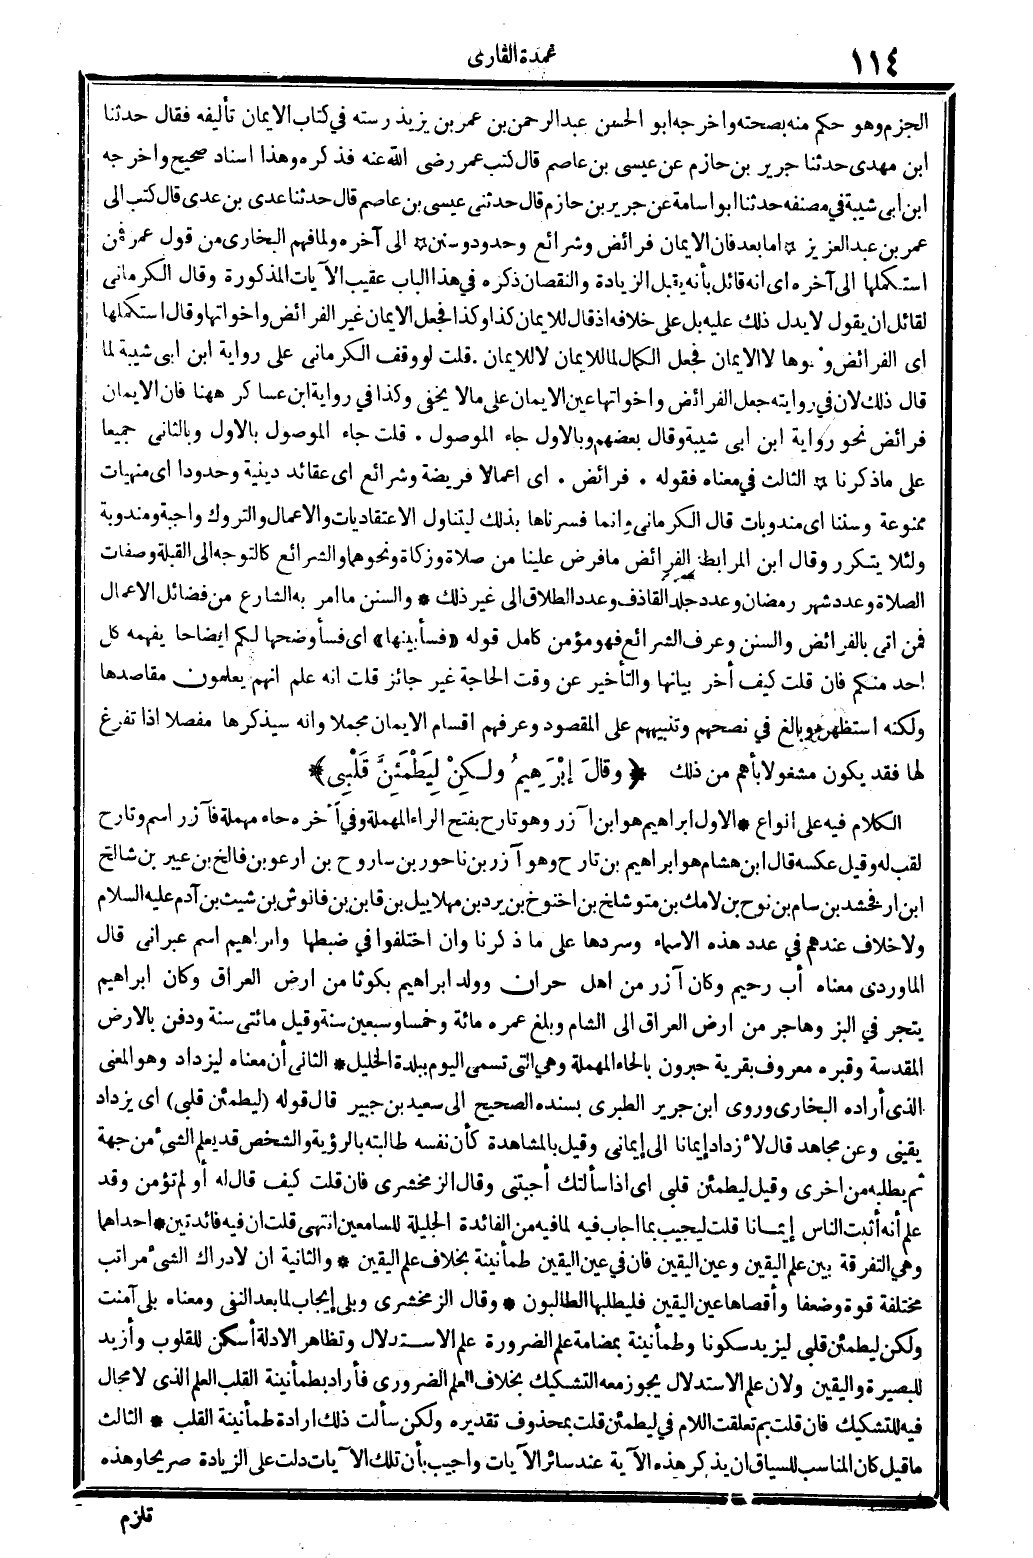 ١١٤
عمدة القارى
الجزم وهو حكم منه بصحته واخرجه ابو الحسن عبدالرحمن بن عمر بن يزيد رسته في كتاب الايمان تأليفه فقال حدثنا
ابن مهدى حدثنا جرير بن حازم عن عيسى بن عاصم قال كتب عمر رضى الله عنه فذكره وهذا اسناد صحيح واخرجه
ابن ابى شيبة في مصنفه حدثنا ابو اسامة عن جرير بن حازم قال حدثنى عيسى بن عاصم قال حدثنا عدى بن عدى قال كتب الى
عمر بن عبدالعزيز * اما بعد فان الايمان فرائض وشرائع وحدود وسنن * الى آخره ولما فهم البخارى من قول عمر فمن
استكملها الى آخره اى انه قائل بأنه يقبل الزيادة والنقصان ذكره في هذا الباب عقيب الآيات المذكورة وقال الكرمانى
لقائل ان يقول لا يدل ذلك عليه بل على خلافه اذ قال للايمان كذا وكذا فجعل الايمان غير الفرائض واخواتها وقال استكملها
اى الفرائض ونحوها لا الايمان فجعل الكمال لما للايمان لا للايمان . قلت لو وقف الكرمانى على رواية ابن ابى شيبة لما
قال ذلك لان في روايته جعل الفرائض واخواتها عين الايمان على مالا يخفى وكذا في رواية ابن عساكر ههنا فان الايمان
فرائض نحو رواية ابن ابى شيبة وقال بعضهم وبالاول جاء الموصول . قلت جاء الموصول بالاول وبالثانى جميعا
على ماذكرنا * الثالث في معناه فقوله . فرائض . اى اعمالا فريضة وشرائع اى عقائد دينية وحدودا اى منهيات
ممنوعة وسننا اى مندوبات قال الكرمانى وانما فسرناها بذلك ليتناول الاعتقاديات والاعمال والتروك واجبة ومندوبة
ولئلا يتكرر وقال ابن المرابط الفرائض مافرض علينا من صلاة وزكاة ونحوهما والشرائع كالتوجه الى القبلة وصفات
الصلاة وعدد شهر رمضان وعدد جلد القاذف وعدد الطلاق الى غير ذلك * والسنن ما امر به الشارع من فضائل الاعمال
فمن اتى بالفرائض والسنن وعرف الشرائع فهو مؤمن كامل قوله «فسأبينها» اى فسأوضحها لكم ايضاحا يفهمه كل
احد منكم فان قلت كيف أخر بيانها والتأخير عن وقت الحاجة غير جائز قلت انه علم انهم يعلمون مقاصدها
ولكنه استظهر وبالغ في نصحهم وتنبيههم على المقصود وعرفهم اقسام الايمان مجملا وانه سيذكرها مفصلا اذا تفرغ
لها فقد يكون مشغولا بأهم من ذلك * ﴿ وقالَ إبْرَهِيمُ ولكِنْ لِيَطْمَئِنَّ قَلْبِى ﴾
الكلام فيه على انواع * الاول ابراهيم هو ابن آزر وهو تارح بفتح الراء المهملة وفي آخره حاء مهملة فآزر اسم وتارح
لقب له وقيل عكسه قال ابن هشام هو ابراهيم بن تارح وهو آزر بن ناحور بن ساروح بن ارعو بن فالخ بن عيبر بن شالخ
ابن ارفخشد بن سام بن نوح بن لامك بن متوشلخ بن اخنوخ بن يرد بن مهلاييل بن قابن بن فانوش بن شيث بن آدم عليه السلام
ولا خلاف عندهم في عدد هذه الاسماء وسردها على ما ذكرنا وان اختلفوا في ضبطها وابراهيم اسم عبرانى قال
الماوردى معناه أب رحيم وكان آزر من اهل حران وولد ابراهيم بكوثا من ارض العراق وكان ابراهيم
يتجر في البز وهاجر من ارض العراق الى الشام وبلغ عمره مائة وخمسا وسبعين سنة وقيل مائتى سنة ودفن بالارض
المقدسة وقبره معروف بقرية حبرون بالحاء المهملة وهي التى تسمى اليوم ببلدة الخليل * الثانى أن معناه ليزداد وهو المعنى
الذى أراده البخارى وروى ابن جرير الطبرى بسنده الصحيح الى سعيد بن جبير قال قوله (ليطمئن قلبى) اى يزداد
يقينى وعن مجاهد قال لأزداد إيمانا الى إيمانى وقيل بالمشاهدة كأن نفسه طالبته بالرؤية والشخص قد يعلم الشىء من جهة
ثم يطلبه من اخرى وقيل ليطمئن قلبى اى اذا سألتك أجبتنى وقال الزمخشرى فان قلت كيف قال له أو لم تؤمن وقد
علم أنه أثبت الناس إيمانا قلت ليجيب بما اجاب فيه لما فيه من الفائدة الجليلة للسامعين انتهى قلت ان فيه فائدتين * احداهما
وهي التفرقة بين علم اليقين وعين اليقين فان في عين اليقين طمأنينة بخلاف علم اليقين * والثانية ان لادراك الشىء مراتب
مختلفة قوة وضعفا وأقصاها عين اليقين فليطلبها الطالبون * وقال الزمخشرى وبلى إيجاب لما بعد النفى ومعناه بلى آمنت
ولكن ليطمئن قلبى ليزيد سكونا وطمأنينة بمضامة علم الضرورة علم الاستدلال وتظاهر الادلة أسكن للقلوب وأزيد
للبصيرة واليقين ولان علم الاستدلال يجوز معه التشكيك بخلاف العلم الضرورى فأراد بطمأنينة القلب العلم الذى لا مجال
فيه للتشكيك فان قلت بم تعلقت اللام في ليطمئن قلت بمحذوف تقديره ولكن سألت ذلك ارادة طمأنينة القلب * الثالث
ما قيل كان المناسب للسياق ان يذكر هذه الآية عند سائر الآيات واجيب بأن تلك الآيات دلت على الزيادة صريحا وهذه
تلزم